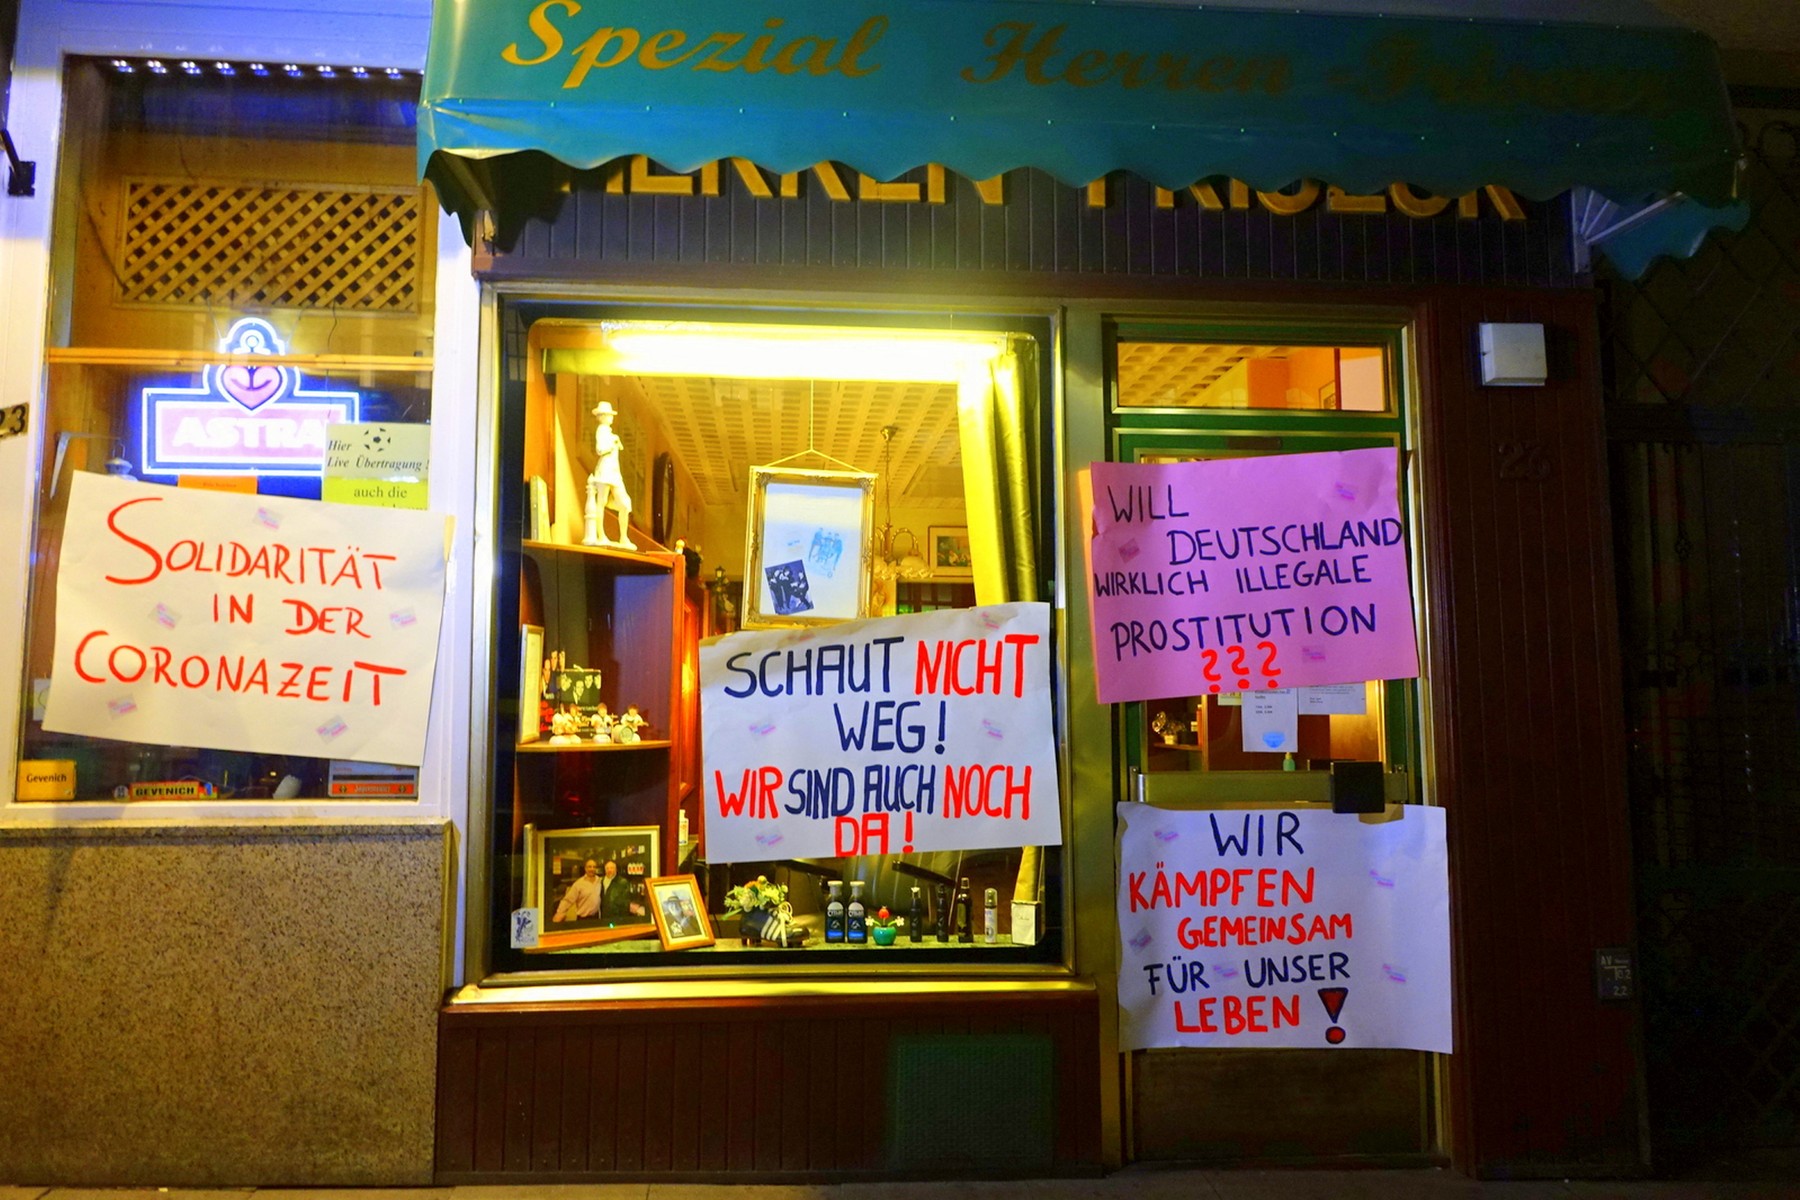 Spezial Herren-Friseur
HERREN FRISEUR
ASTRA
Hier
Live Übertragung!
auch die
SOLIDARITÄT
IN DER
CORONAZEIT
Gevenich
GEVENICH
23
SCHAUT NICHT
WEG!
WIR SIND AUCH NOCH
DA!
WILL
DEUTSCHLAND
WIRKLICH ILLEGALE
PROSTITUTION
???
WIR
KÄMPFEN
GEMEINSAM
FÜR UNSER
LEBEN!